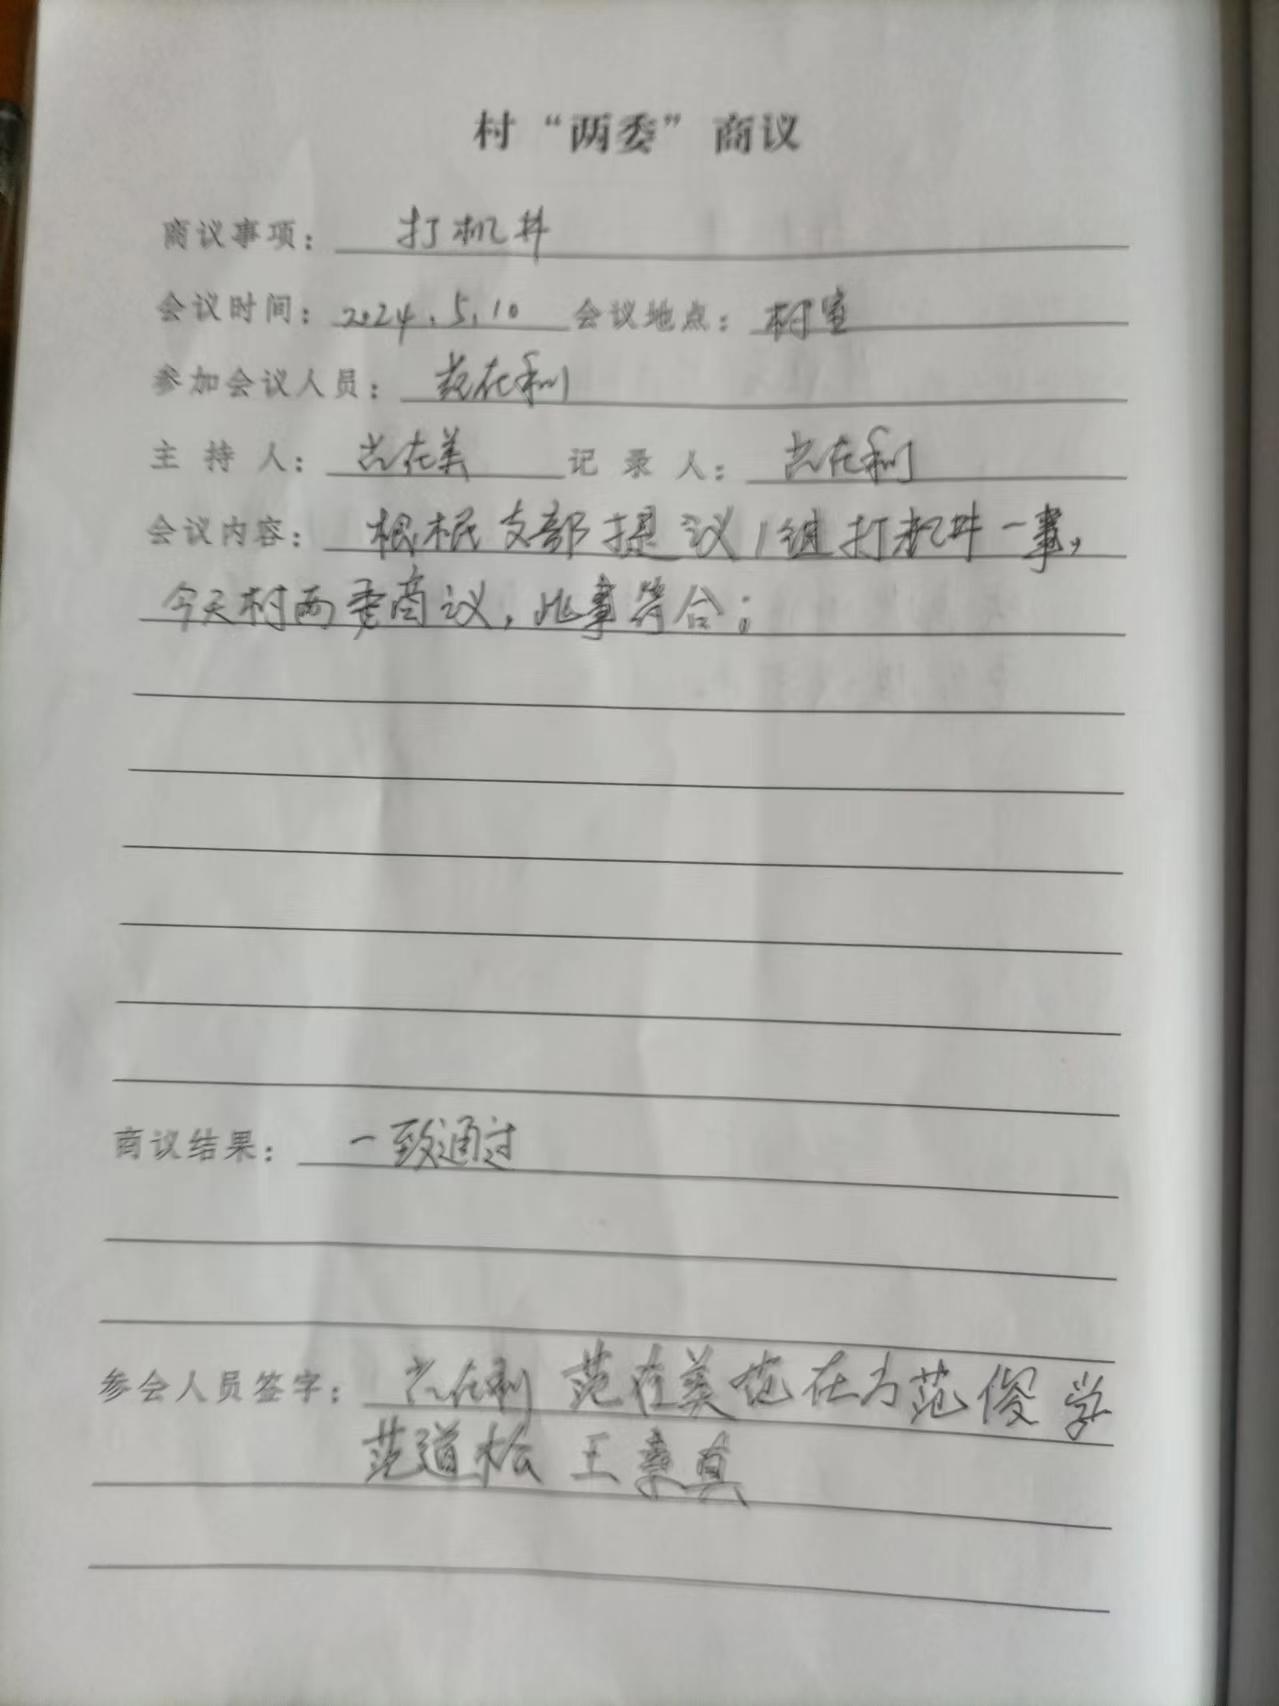 村“两委”商议
商议事项：打机井
会议时间：2024.5.10 会议地点：村室
参加会议人员：范在利
主持人：范在美 记录人：范在利
会议内容：根据支部提议1组打机井一事，
今天村两委商议，此事符合；
商议结果：一致通过
参会人员签字：范在利 范在美 范在力 范俊学
范道松 王真